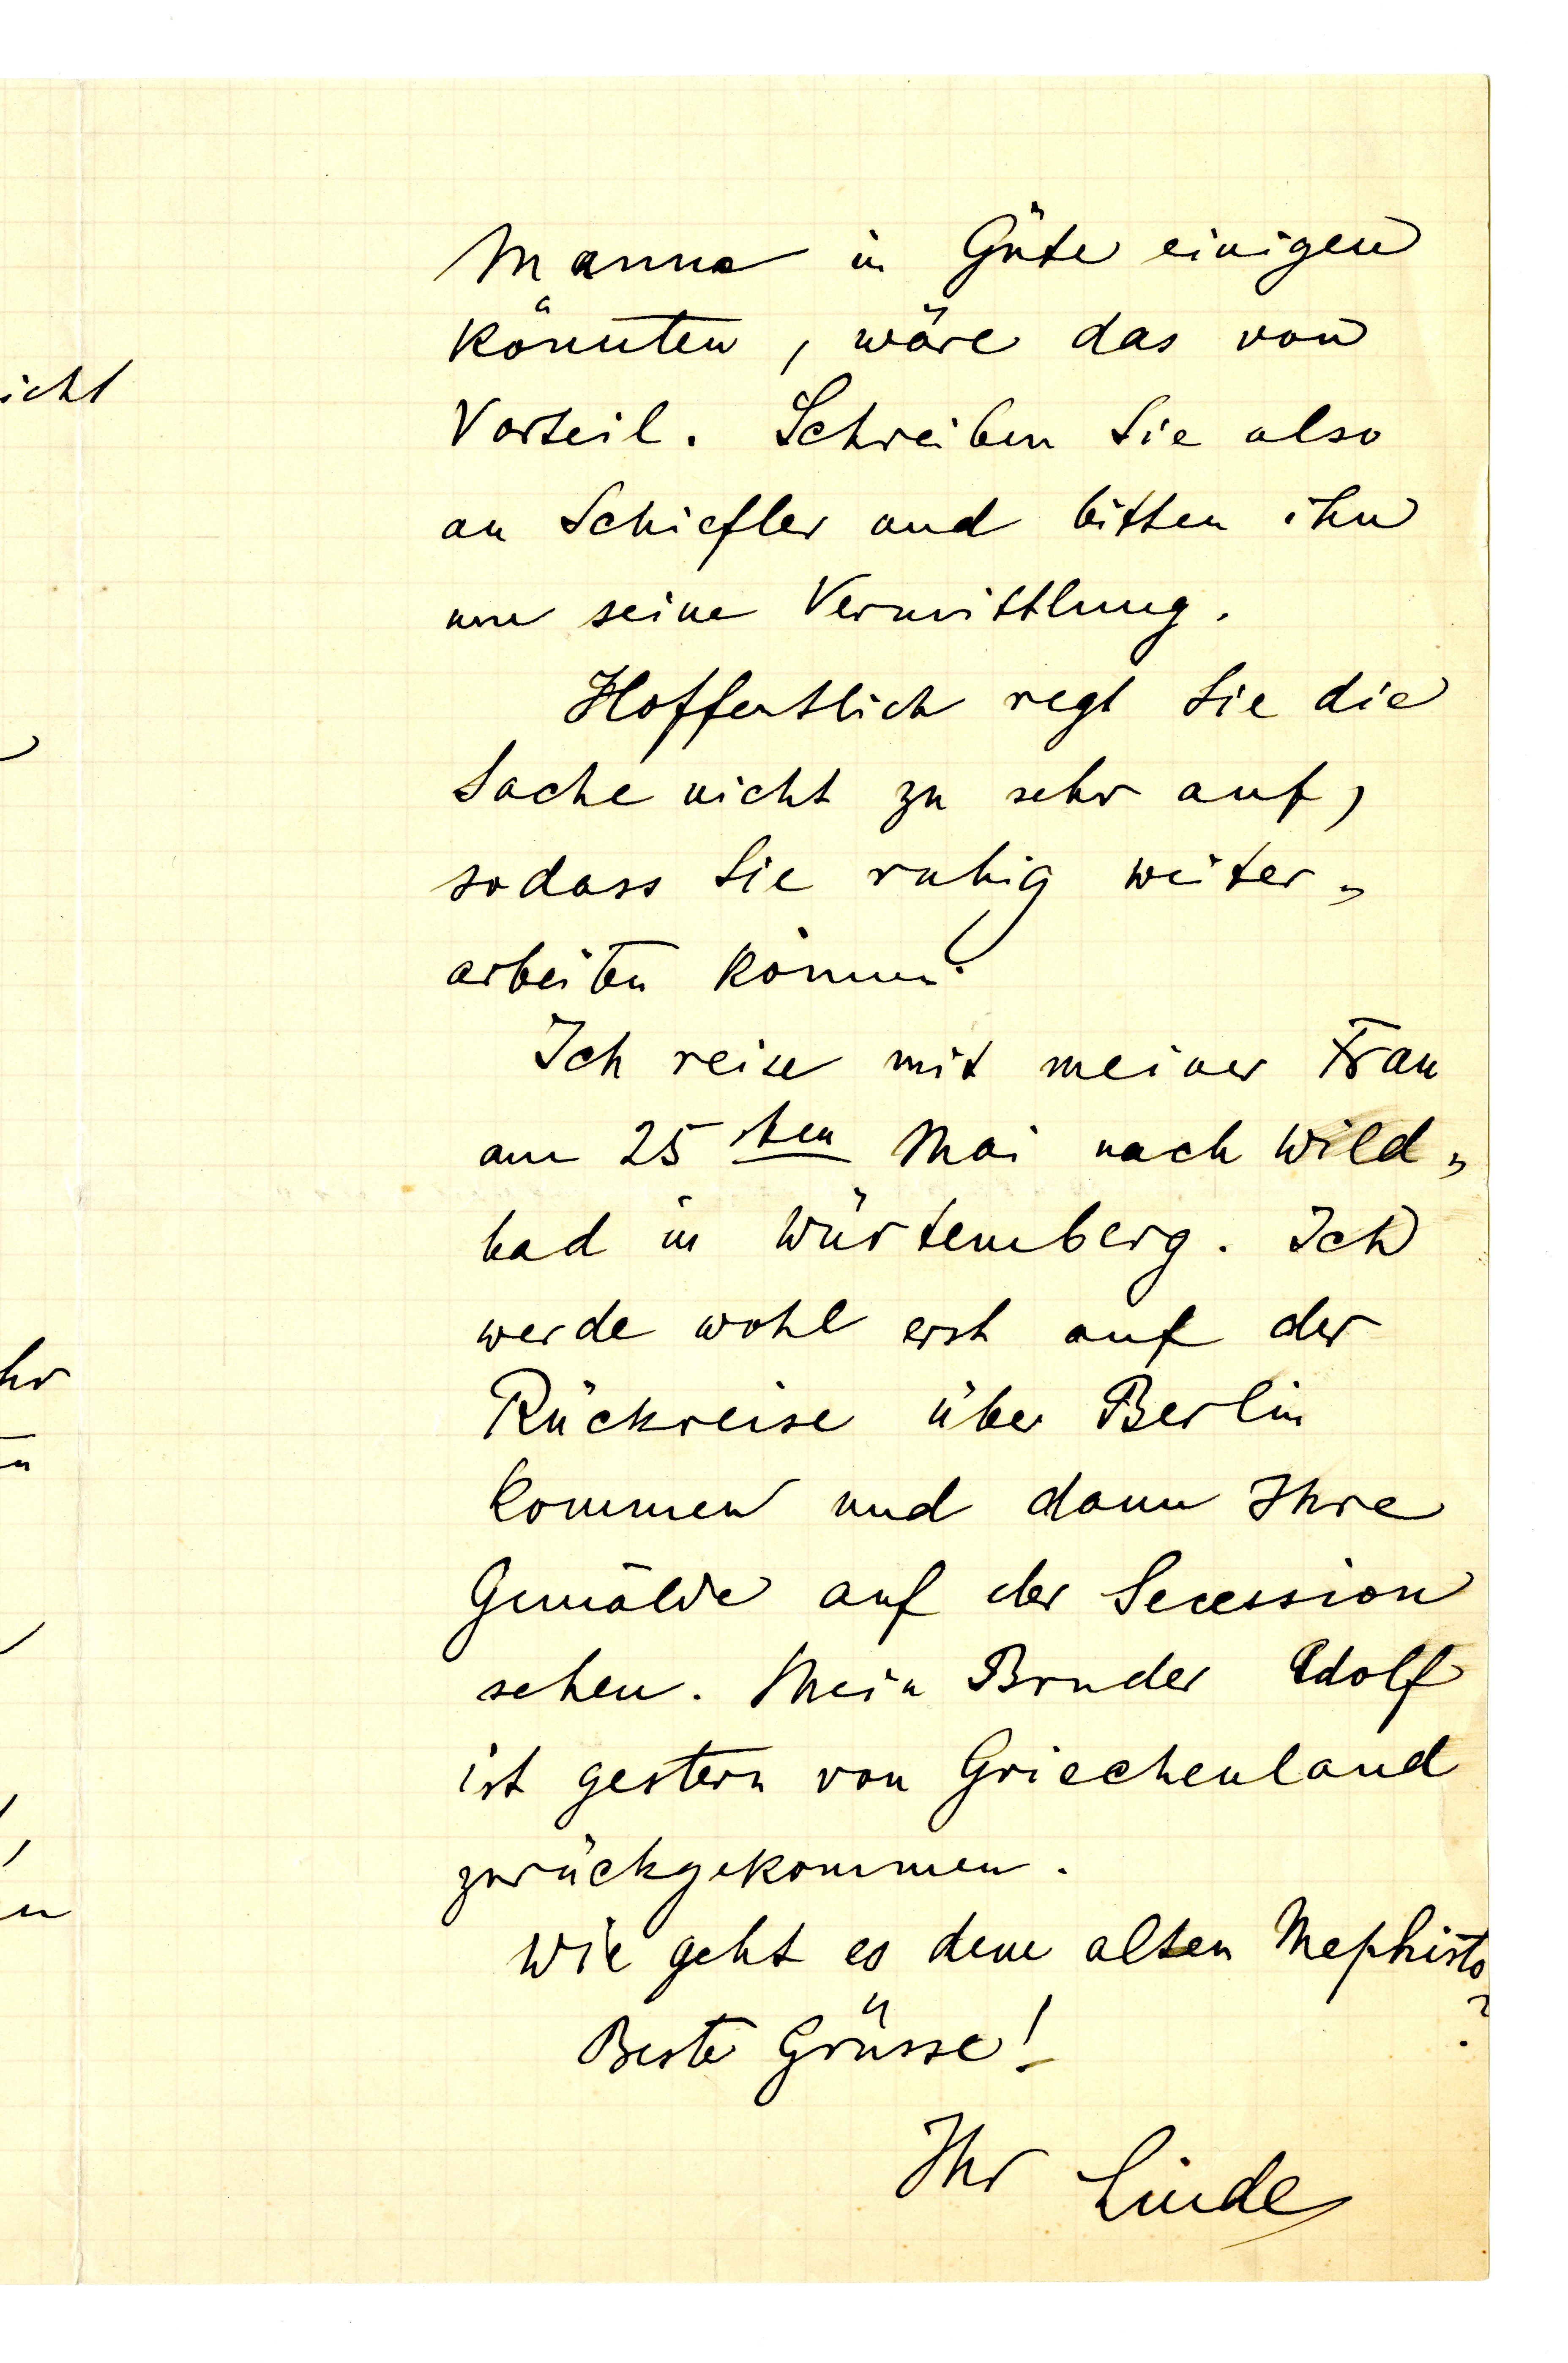 Manne in Güte einigen
könnten, wäre das von
Vorteil. Schreiben Sie also
an Schiefler und bitten ihn
um seine Vermittlung.
Hoffentlich regt Sie die
Sache nicht zu sehr auf,
sodass Sie ruhig weiter„
arbeiten können.
Ich reise mit meiner Frau
am 25sten Mai nach Wild„
bad in Würtemberg. Ich
werde wohl erst auf der
Rückreise über Berlin
kommen und dann Ihre
Gemälde auf der Secession
sehen. Mein Bruder Adolf
ist gestern von Griechenland
zurückgekommen.
Wie geht es dem alten Mephisto
?
Beste Grüsse!
Ihr Linde